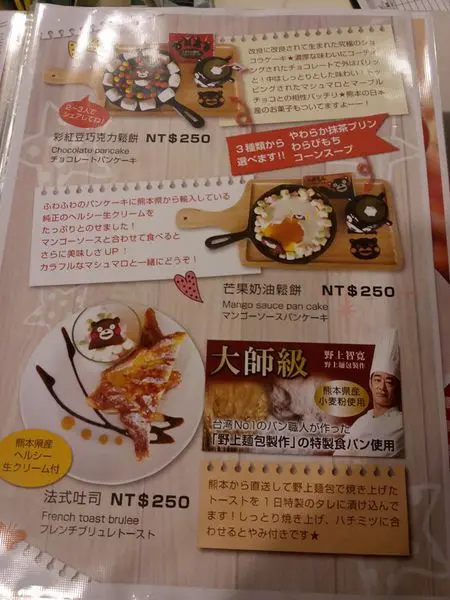 改良に改良されて生まれた究極のショ
コラケーキ★濃厚な味わいにコーティ
ングされたチョコレートで外はパリッ
と！中はしっとりとした味わい！トッ
ピングされたマシュマロとマーブル
チョコとの相性バッチリ★熊本の日本
産のお菓子もついてますよーー！
2～3人で
シェアしてね！
彩紅豆巧克力鬆餅 NT$250
Chocolate pancake
チョコレートパンケーキ
3種類から
選べます!!
やわらか抹茶プリン
わらびもち
コーンスープ
ふわふわのパンケーキに熊本県から輸入している
純正のヘルシー生クリームを
たっぷりとのせました！
マンゴーソースと合わせて食べると
さらに美味しさUP！
カラフルなマシュマロと一緒にどうぞ！
芒果奶油鬆餅 NT$250
Mango sauce pan cake
マンゴーソースパンケーキ
大師級
野上智寛
野上麵包製作
熊本県産
小麦粉使用
台湾No.1のパン職人が作った
「野上麵包製作」の特製食パン使用
熊本県産
ヘルシー
生クリーム付
法式吐司 NT$250
French toast brulee
フレンチブリュレトースト
熊本から直送して野上麵包で焼き上げた
トーストを1日特製のタレに漬け込んで
ます！しっとり焼き上げ、ハチミツに合
わせるとやみ付きです★